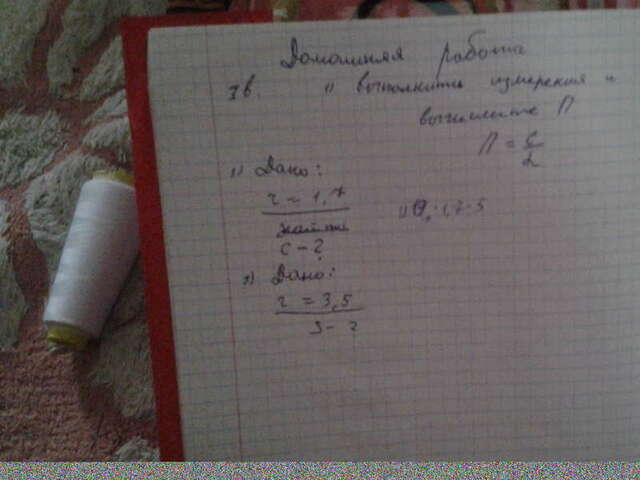 Домашняя работа
1) выполнить измерения и
вычислите П
П = C
1) Дано:
r = 1,7
C - ?
2) Дано:
r = 3,5
S - ?